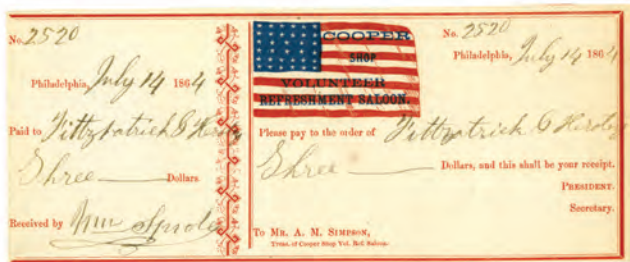 No. 2520
Philadelphia, July 14 1864
Paid to Fittzpatrick &
Three Dollars
Received by Wm
COOPER
SHOP
VOLUNTEER
REFRESHMENT SALOON.
No. 2520
Philadelphia, July 14 1864
Please pay to the order of Fittzpatrick &
Three Dollars, and this shall be your receipt.
PRESIDENT.
Secretary.
To MR. A. M. SIMPSON,
Treas. of Cooper Shop Vol. Ref. Saloon.